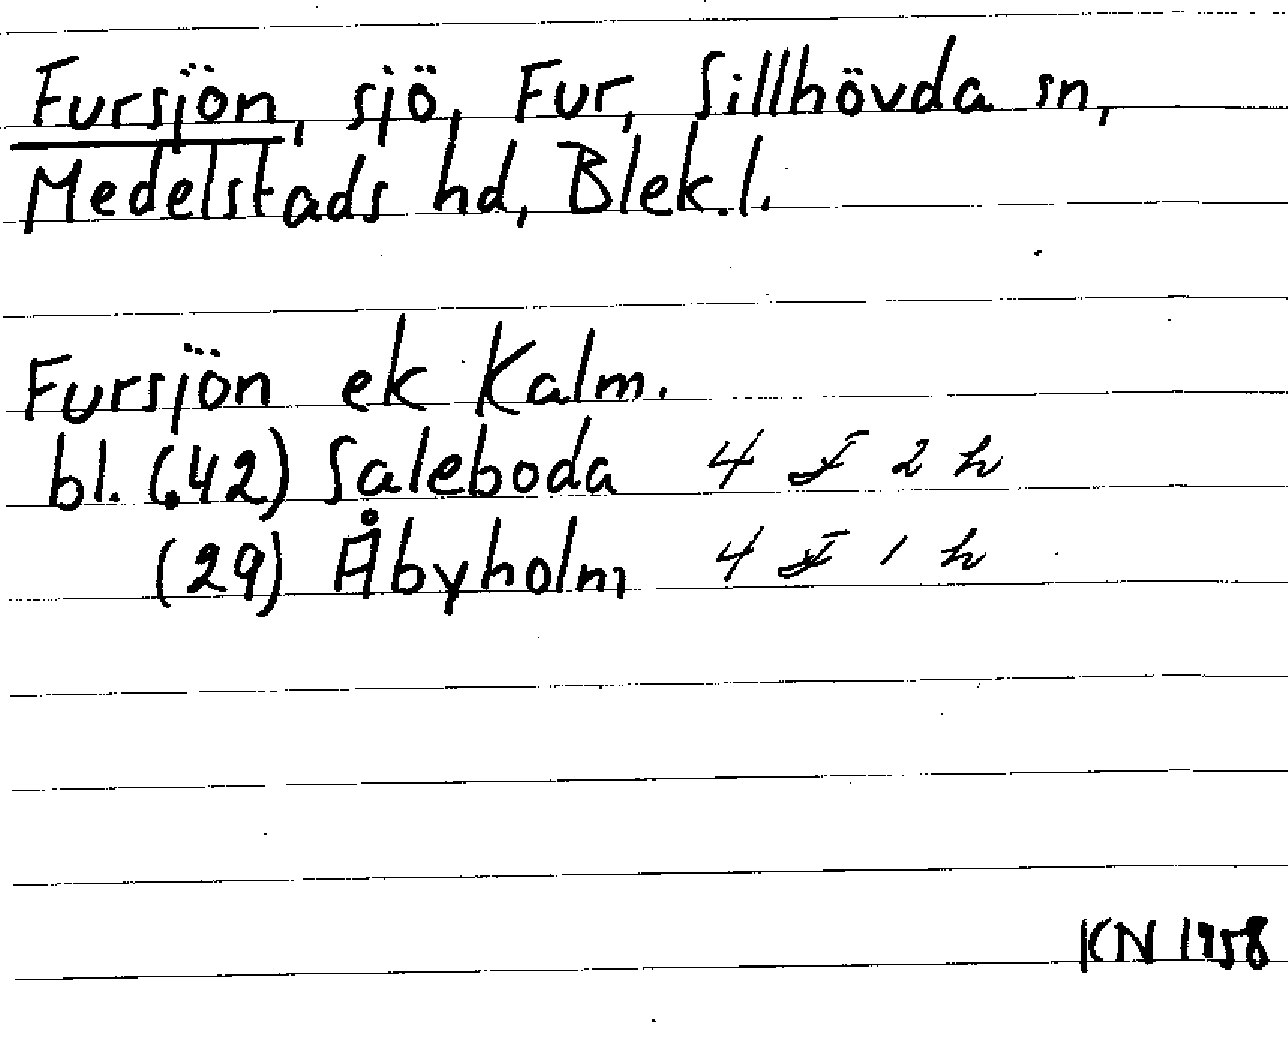 Fursjön, sjö, Fur, Sillhövda sn,
Medelstads hd, Blek.l.
Fursjön ek Kalm.
bl. (42) Saleboda 4 F 2 h
(29) Åbyholm 4 F 1 h
KN 1958